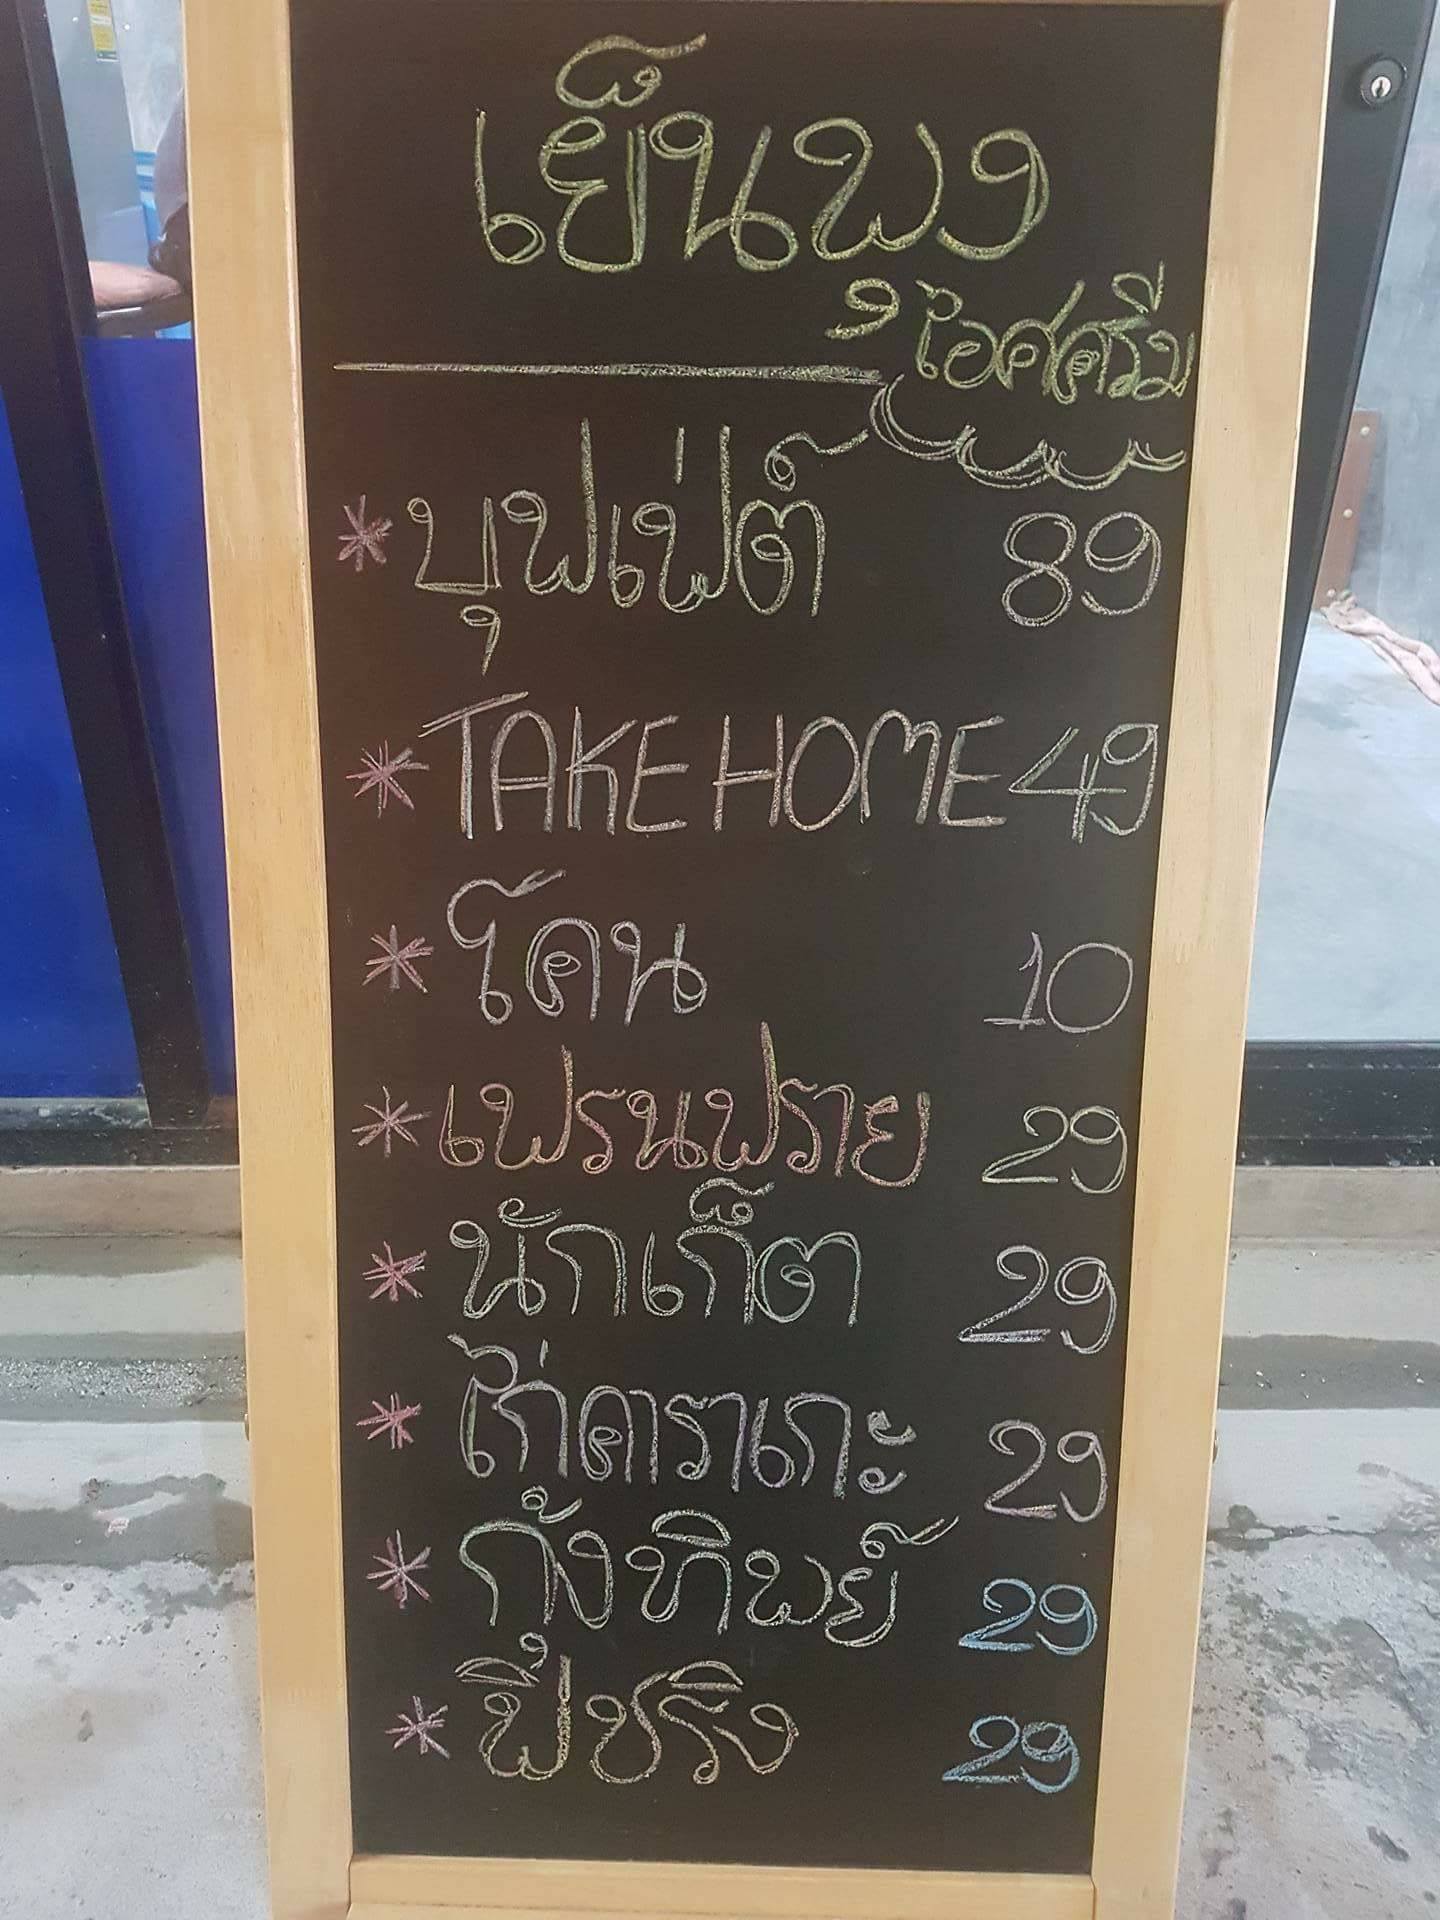 เย็นพุง
ไอศครีม
* บุฟเฟ่ต์ 89
* TAKE HOME 49
* โคน 10
* เฟรนฟราย 29
* นักเก็ต 29
* ไก่คาราเกะ 29
* กุ้งทิพย์ 29
* ฟิชริง 29